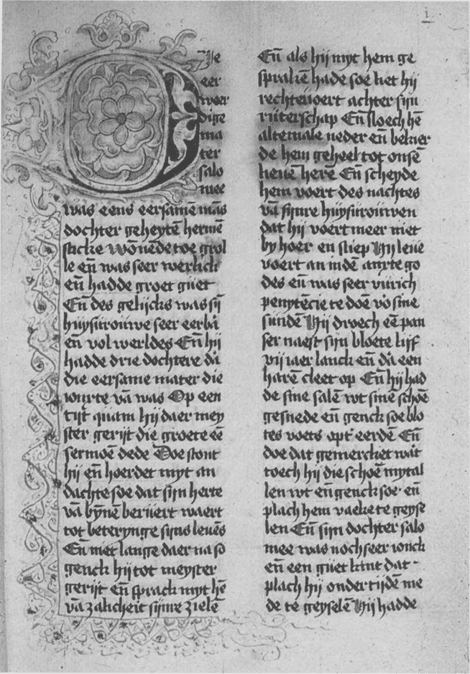 i
Die
eer
weer
dige
ma
ter
salo
mee
was eens eersamē mās
dochter geheytē hermē
sticke wōnēde toe grol
le eñ was seer werlick
eñ hadde groet guet
Eñ des gelijcks was sij
huysurouwe seer eerbā
eñ vol werldes Eñ hij
hadde drie dochtere dā
die eersame mater die
iourste vā was Op een
tijt quam hij daer mey
ster gerijt die groete eē
sermoē dede Doe stont
hij eñ hoerdet myt an
dachte soe dat sijn herte
vā bȳnē beruert waert
tot beterynge sijns leuēs
Eñ niet lange daer na so
genck hij tot meyster
gerijt eñ sprack myt hē
vā zalicheit sijnre ziele
Eñ als hij myt hem ge
spraken hade soe liet hij
rechteuoert achter sijn
ruterschap Eñ sloech hē
altemale neder eñ bekeer
de hem geheel tot onsē
lieuē here Eñ scheyde
hem voert des nachtes
vā sijnre huysurouwen
dat hij voert meer niet
by hoer en sliep Hij leue
voert an indē anxte go
des eñ was seer vurich
penytēcie te doē vo sine
sundē Hij droech eē pan
ser naest sijn bloete lijf
vij iaer lanck eñ dā een
harē cleet op Eñ hij had
de sine salē vt sine schoē
gesnede eñ genck soe blo
tes voets opt eerdē Eñ
doe dat gemercket wāt
toech hij die schoē mytal
len vt eñ genck soe eñ
plach hem vaeke te geyse
len Eñ sijn dochter salo
mee was noch seer ionck
eñ een guet kint dat
plach hij ondertijdē me
de te geyselē Hij hadde